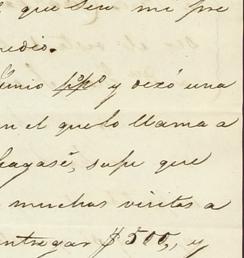 que ser mi pre
edio.
unio ppº y dexó una
en el que lo llama a
agasé, supe que
muchas visitas a
entregar $500,, y